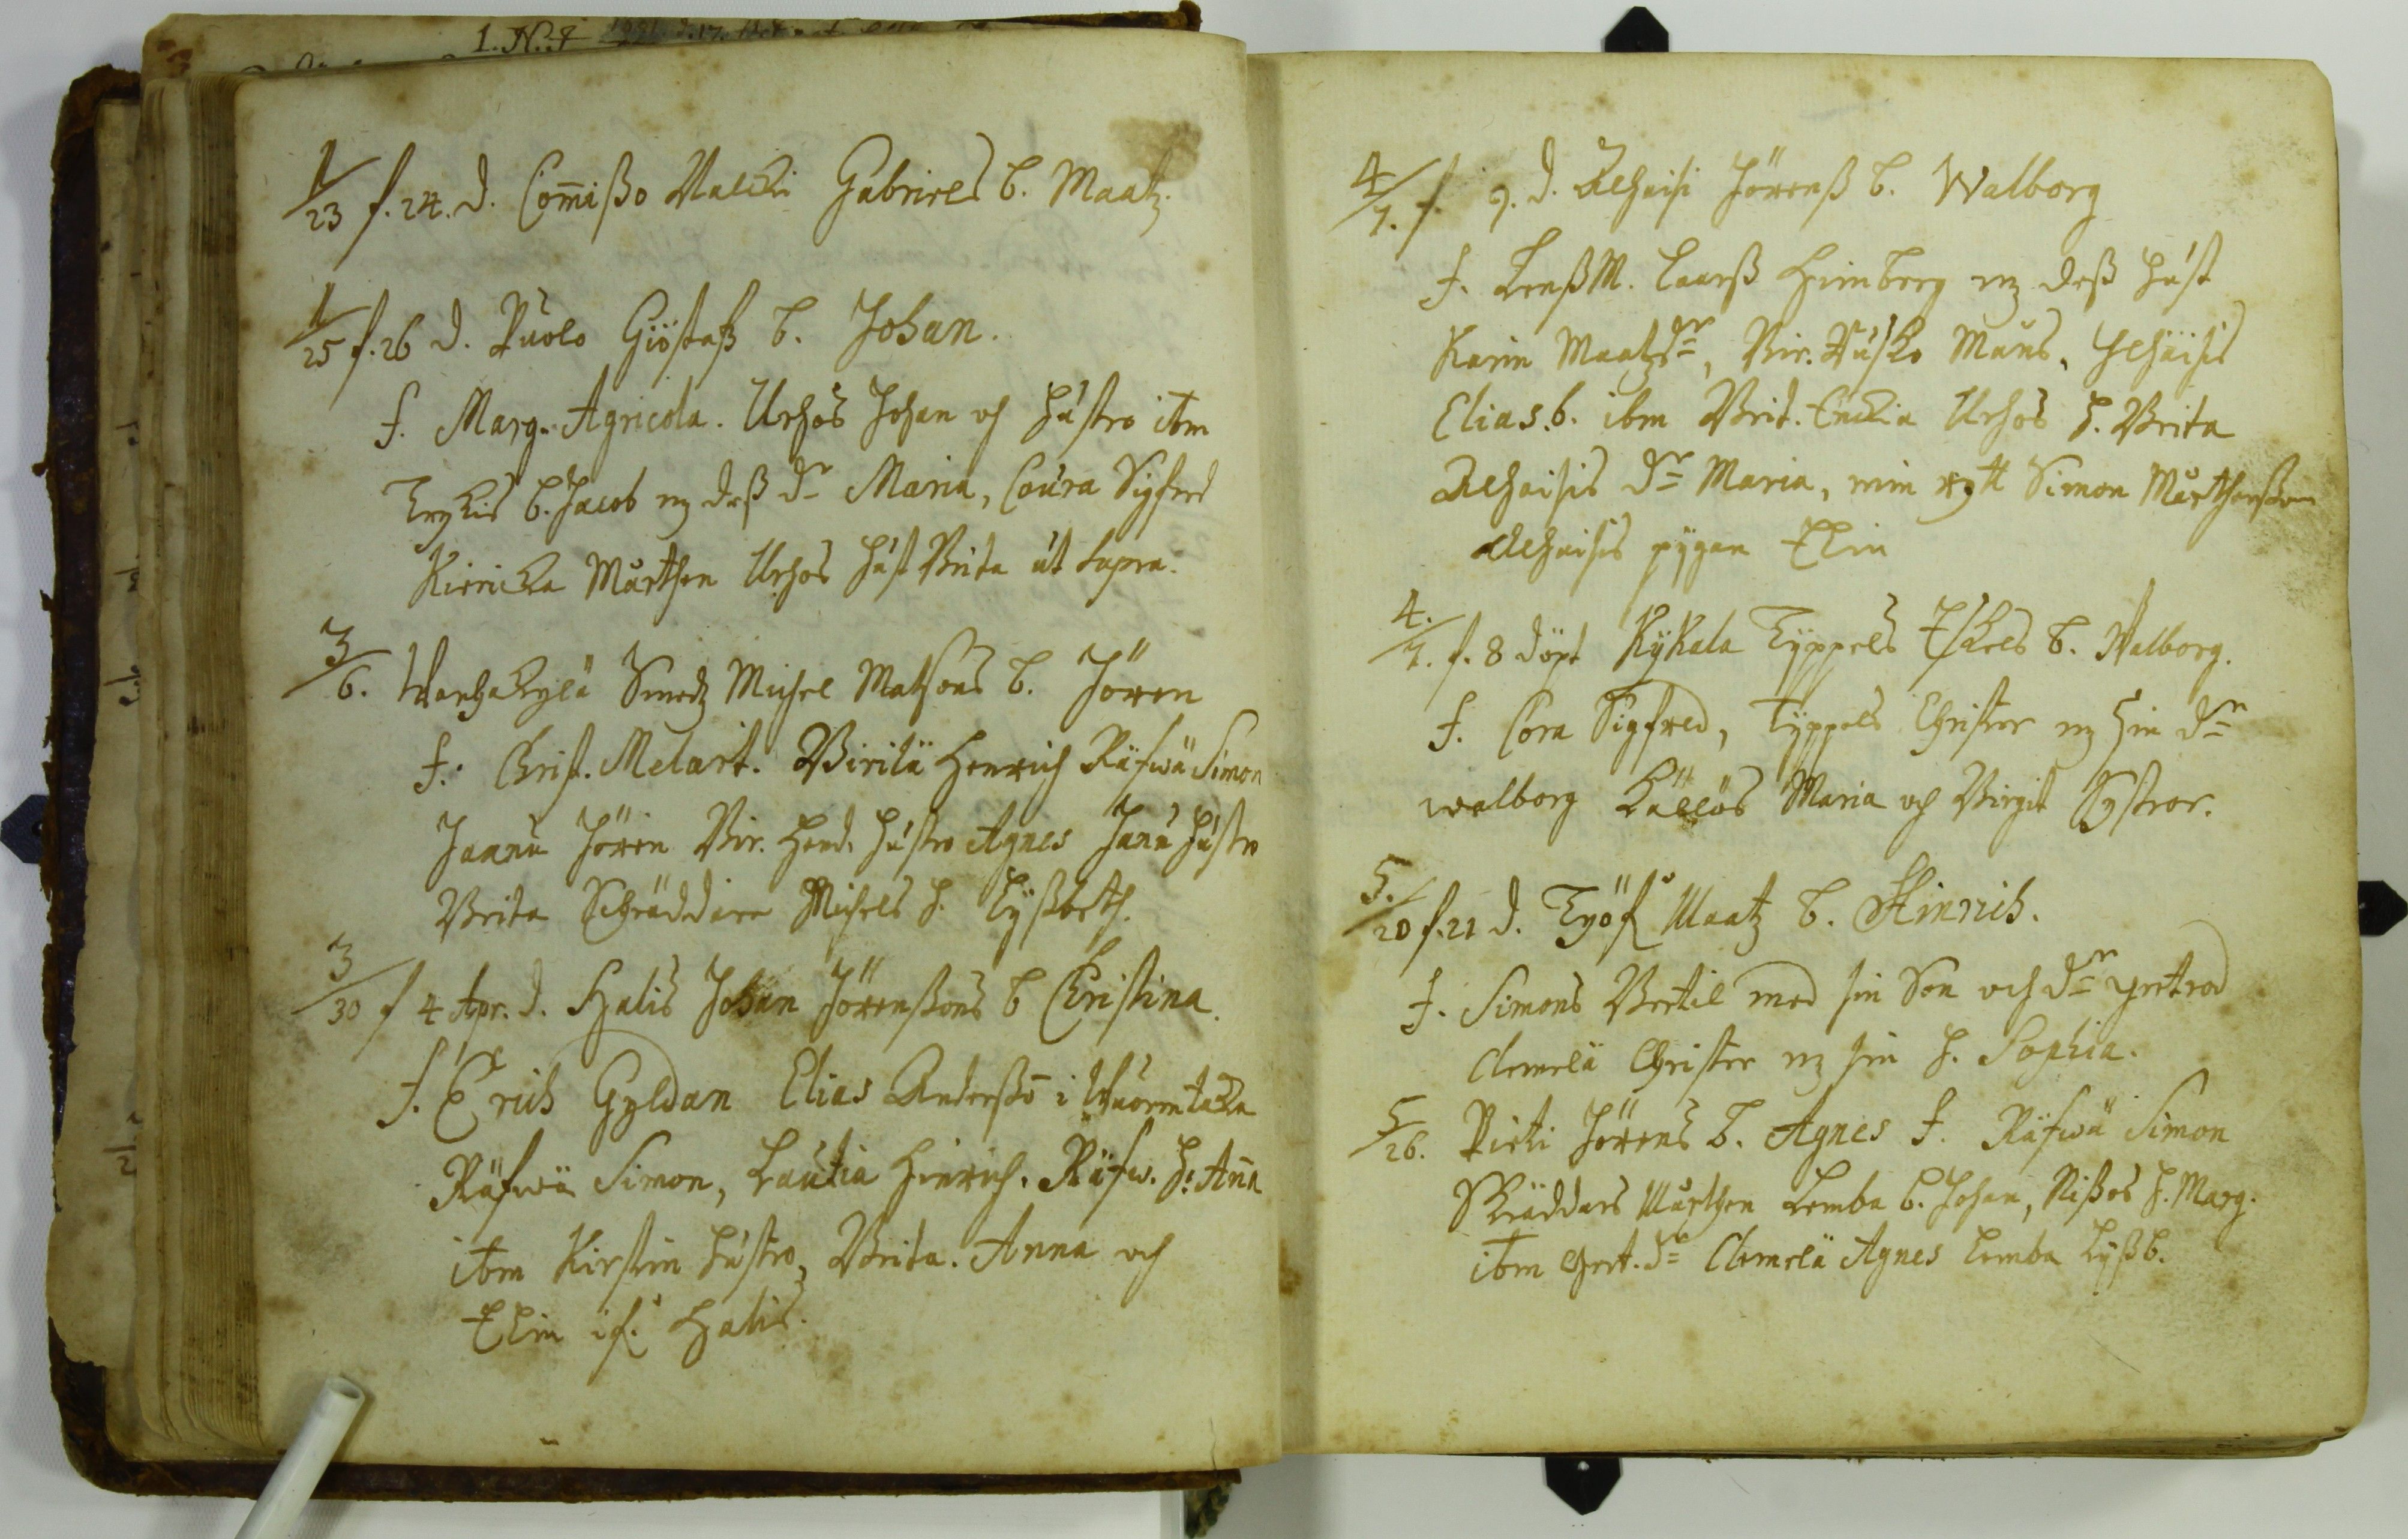 1/23 f. 24. d. Com̄ißo Valcki Gabriels b. Maatz.
1/25 f. 26 d. Puolo Giöstaß b. Johan.
f. Marg. Agricola. Urhos Johan och hustro ibm
b. Jacob mz deß dr Maria, Coura Sigfred
Kiericka Mårthen Urhos hust Brita ut supra.
3/6. Wanhakylä Smedz Michel Matsons b. Jören
f. Christ. Melart. Birilä Henrich Räfwä Simon
Jaanu Jören Bir. Hend. hustro Agnes Janu hustro
Brita Schräddare Michels h. Lyßbeth.
3/30 f 4 Apr. d. Halis Johan Jörenßons b Christina.
f. Erich Gyldan Elias Anderßo i Wuorentaka
Räfwä Simon, Lautia Hinrich. Räfw. h. Anna
ibm Kirstin hustro, Brita. Anna och
Elin if. Halis.
4/7. f. 9. d. Alhaisi Jörenß b. Walborg
f. LenßM. Laarß Heimberg mz deß hust
Karin Maatzdr, Bir. Måns, Alhaisis
Elias. b. ibm Brit. Urhos h. Brita
Alhaisis dr Maria, min Simon Mårthenßon
Alhaisis pygan Elin
4./7. f. 8 döpt Kykala Typpels Eskels b. Walborg.
f. Cora Sigfred, Typpels Christer mz sin dr
walborg Källös Maria och Birgit Systrar.
5./20 f. 21 d. Maatz b. Hinrich.
f. Simons Bertil med sin Son och dr gertrod
Clemelä Christer mz sin h. Sophia.
5/26. Pieti Jörens b. Agnes f. Räfwä Simon
Skräddars Mårthen Lemba b. Johan, Nißos h. Marg.
ibm Gert. dr Clemelä Agnes Lemba Lyßb.